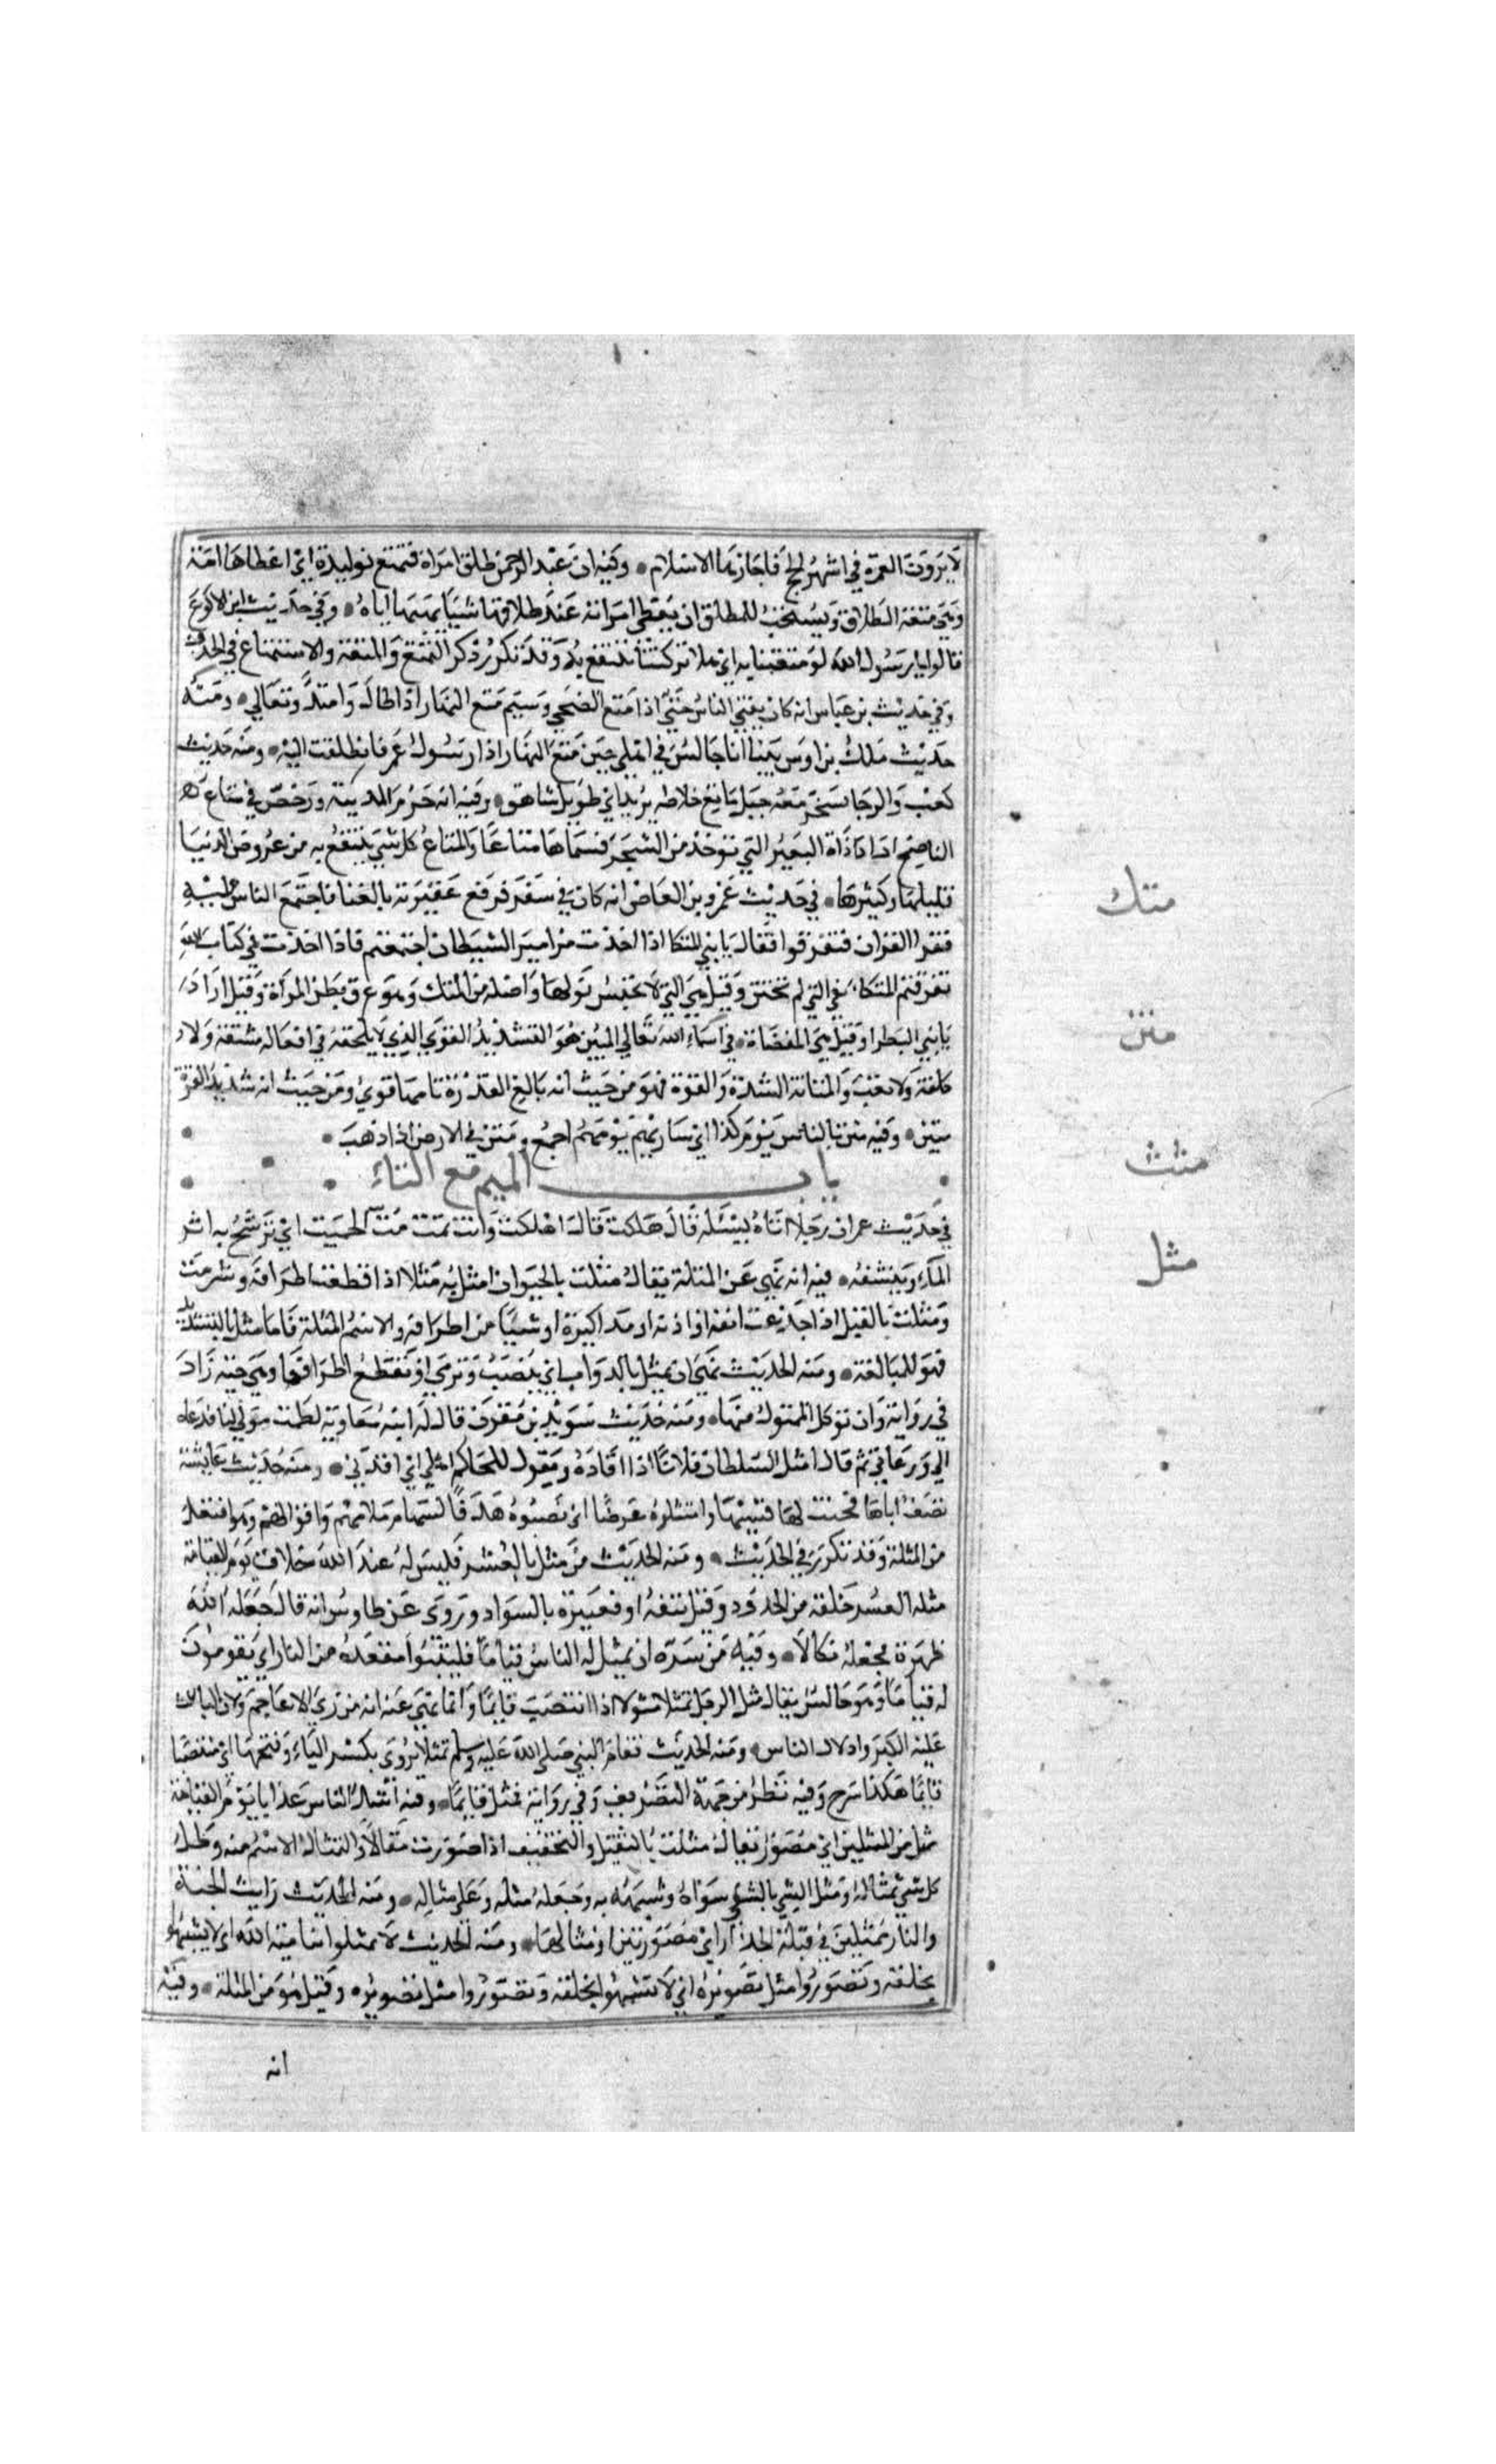 لا يرون العمرة في اشهر الحج فاجازها الاسلام • وفيه ان عبد الرحمن طلق امراة فمتع بوليدة اي اعطاها امة
وهي متعة الطلاق ويستحب للمطلق ان يعطي امراته عند طلاقها شيا يهبها اياه • وفي حديث ابن الاكوع
قالوا يا رسول الله لولا متعتنا به اي هلا تركتنا ننتفع به وقد تكرر ذكر التمتع والمتعة والاستمتاع في الحديث
وفي حديث بن عباس انه كان يفتي الناس حتي اذا متع الضحي وسيم متع النهار اذا طال وامتد وتعالي • ومنه
حديث ملك بن اوس بينا انا جالس في اهلي حين متع النهار اذا رسول عمر فانطلقت اليه • ومنه حديث
كعب والدجال يسخر معه جبل ماتع خلاطه يريد اي طويل شاهق • وفيه انه حرم المدينة ورخص في متاع
الناضح اداة البعير التي توخذ من الشجر فسماها متاعا والمتاع كل شي ينتفع به من عروض الدنيا
قليلها وكثيرها • في حديث عمرو بن العاص انه كان في سفر فرفع عقيرته بالغنا فاجتمع الناس عليه
فقرا القران فتفرقوا فقال يا بني المتكا اذا اخذت مزامير الشيطان اجتمعتم فاذا اخذت في كتاب الله
تفرقتم المتكا هي التي لم تختن وقيل هي التي لا تحبس بولها واصله من المتك وهو عرق بظر المراة وقيل اراد
يا بني البظرا وقيل هي المفضاة • في اسماء الله تعالي المتين هو الشديد القوي الذي لا يلحقه في افعاله مشقة ولا
كلفة ولا تعب والمتانة الشدة والقوة فهو من حيث انه بالغ القدرة تامها قوي ومن حيث انه شديد القوة
متين • وفيه متن بالناس يوم كذا اي سار بهم يومهم اجمع ومتن في الارض اذا ذهب •
باب الميم مع الثاء
في حديث عمر ان رجلا اتاه يسئله قال هلكت قال اهلكت وانت تمث مث الحميت اي ترشح به اثر
الماء وينشفه • فيه انه نهي عن المثلة يقال مثلت بالحيوان امثل به مثلا اذا قطعت اطرافه وشوهت
ومثلت بالقتيل اذا جدعت انفه او اذنه او مذاكيره او شيا من اطرافه والاسم المثلة فاما مثل بالتشديد
فهو للمبالغة • ومنه الحديث نهي ان يمثل بالدواب اي ينصب وترمي او تقطع اطرافها وهي حية زاد
في رواية وان توكل الممثول منها • ومنه حديث سويد بن مقرن قال له ابنه معاوية لطمت مولي لنا فدعاه
ابي ودعاني ثم قال امثل السلطان فلانا اذا اقاده ويقول للحاكم امثلني اي اقدني • ومنه حديث عايشة
تصف اباها فحنت لها قسيها وامتثلوه غرضا اي نصبوه هدفا لسهام ملامهم واقوالهم وهو افتعل
من المثلة وقد تكرر في الحديث • ومنه الحديث من مثل بالشعر فليس له عند الله خلاق يوم القيامة
مثله الشعر حلقه من الخدود وقيل نتفه او تغييره بالسواد وروي عن طاوس انه قال جعله الله
طهرة فجعله نكالا • وفيه من سره ان يمثل له الناس قياما فليتبوا مقعده من النار اي يقومون
له قياما وهو جالس يقال مثل الرجل يمثل مثولا اذا انتصب قايما وانما نهي عنه انه من زي الاعاجم ولان الباعث
عليه الكبر واذلال الناس • ومنه الحديث فقام النبي صلي الله عليه وسلم ممثلا يروي بكسر الثاء وفتحها اي منتصبا
قايما هكذا شرح وفيه نظر من جهة التصريف وفي رواية فمثل قايما • وفيه اشد الناس عذابا يوم القيامة
ممثل من الممثلين اي مصور يقال مثلت بالتثقيل والتخفيف اذا صورت مثالا والتمثال الاسم منه وظل
كل شي تمثاله ومثل الشي بالشي سواه وشبهه به وجعله مثله وعلي مثاله • ومنه الحديث رايت الجنة
والنار ممثلين في قبلة الجدار اي مصورتين او مثالهما • ومنه الحديث لا تمثلوا بنامية الله اي لا تشبهوا
بخلقه وتصوروا مثل تصويره اي لا تشبهوا بخلقه وتصوروا مثل تصويره • وقيل هو من المثلة • وفيه
انه
متك
متن
مثث
مثل